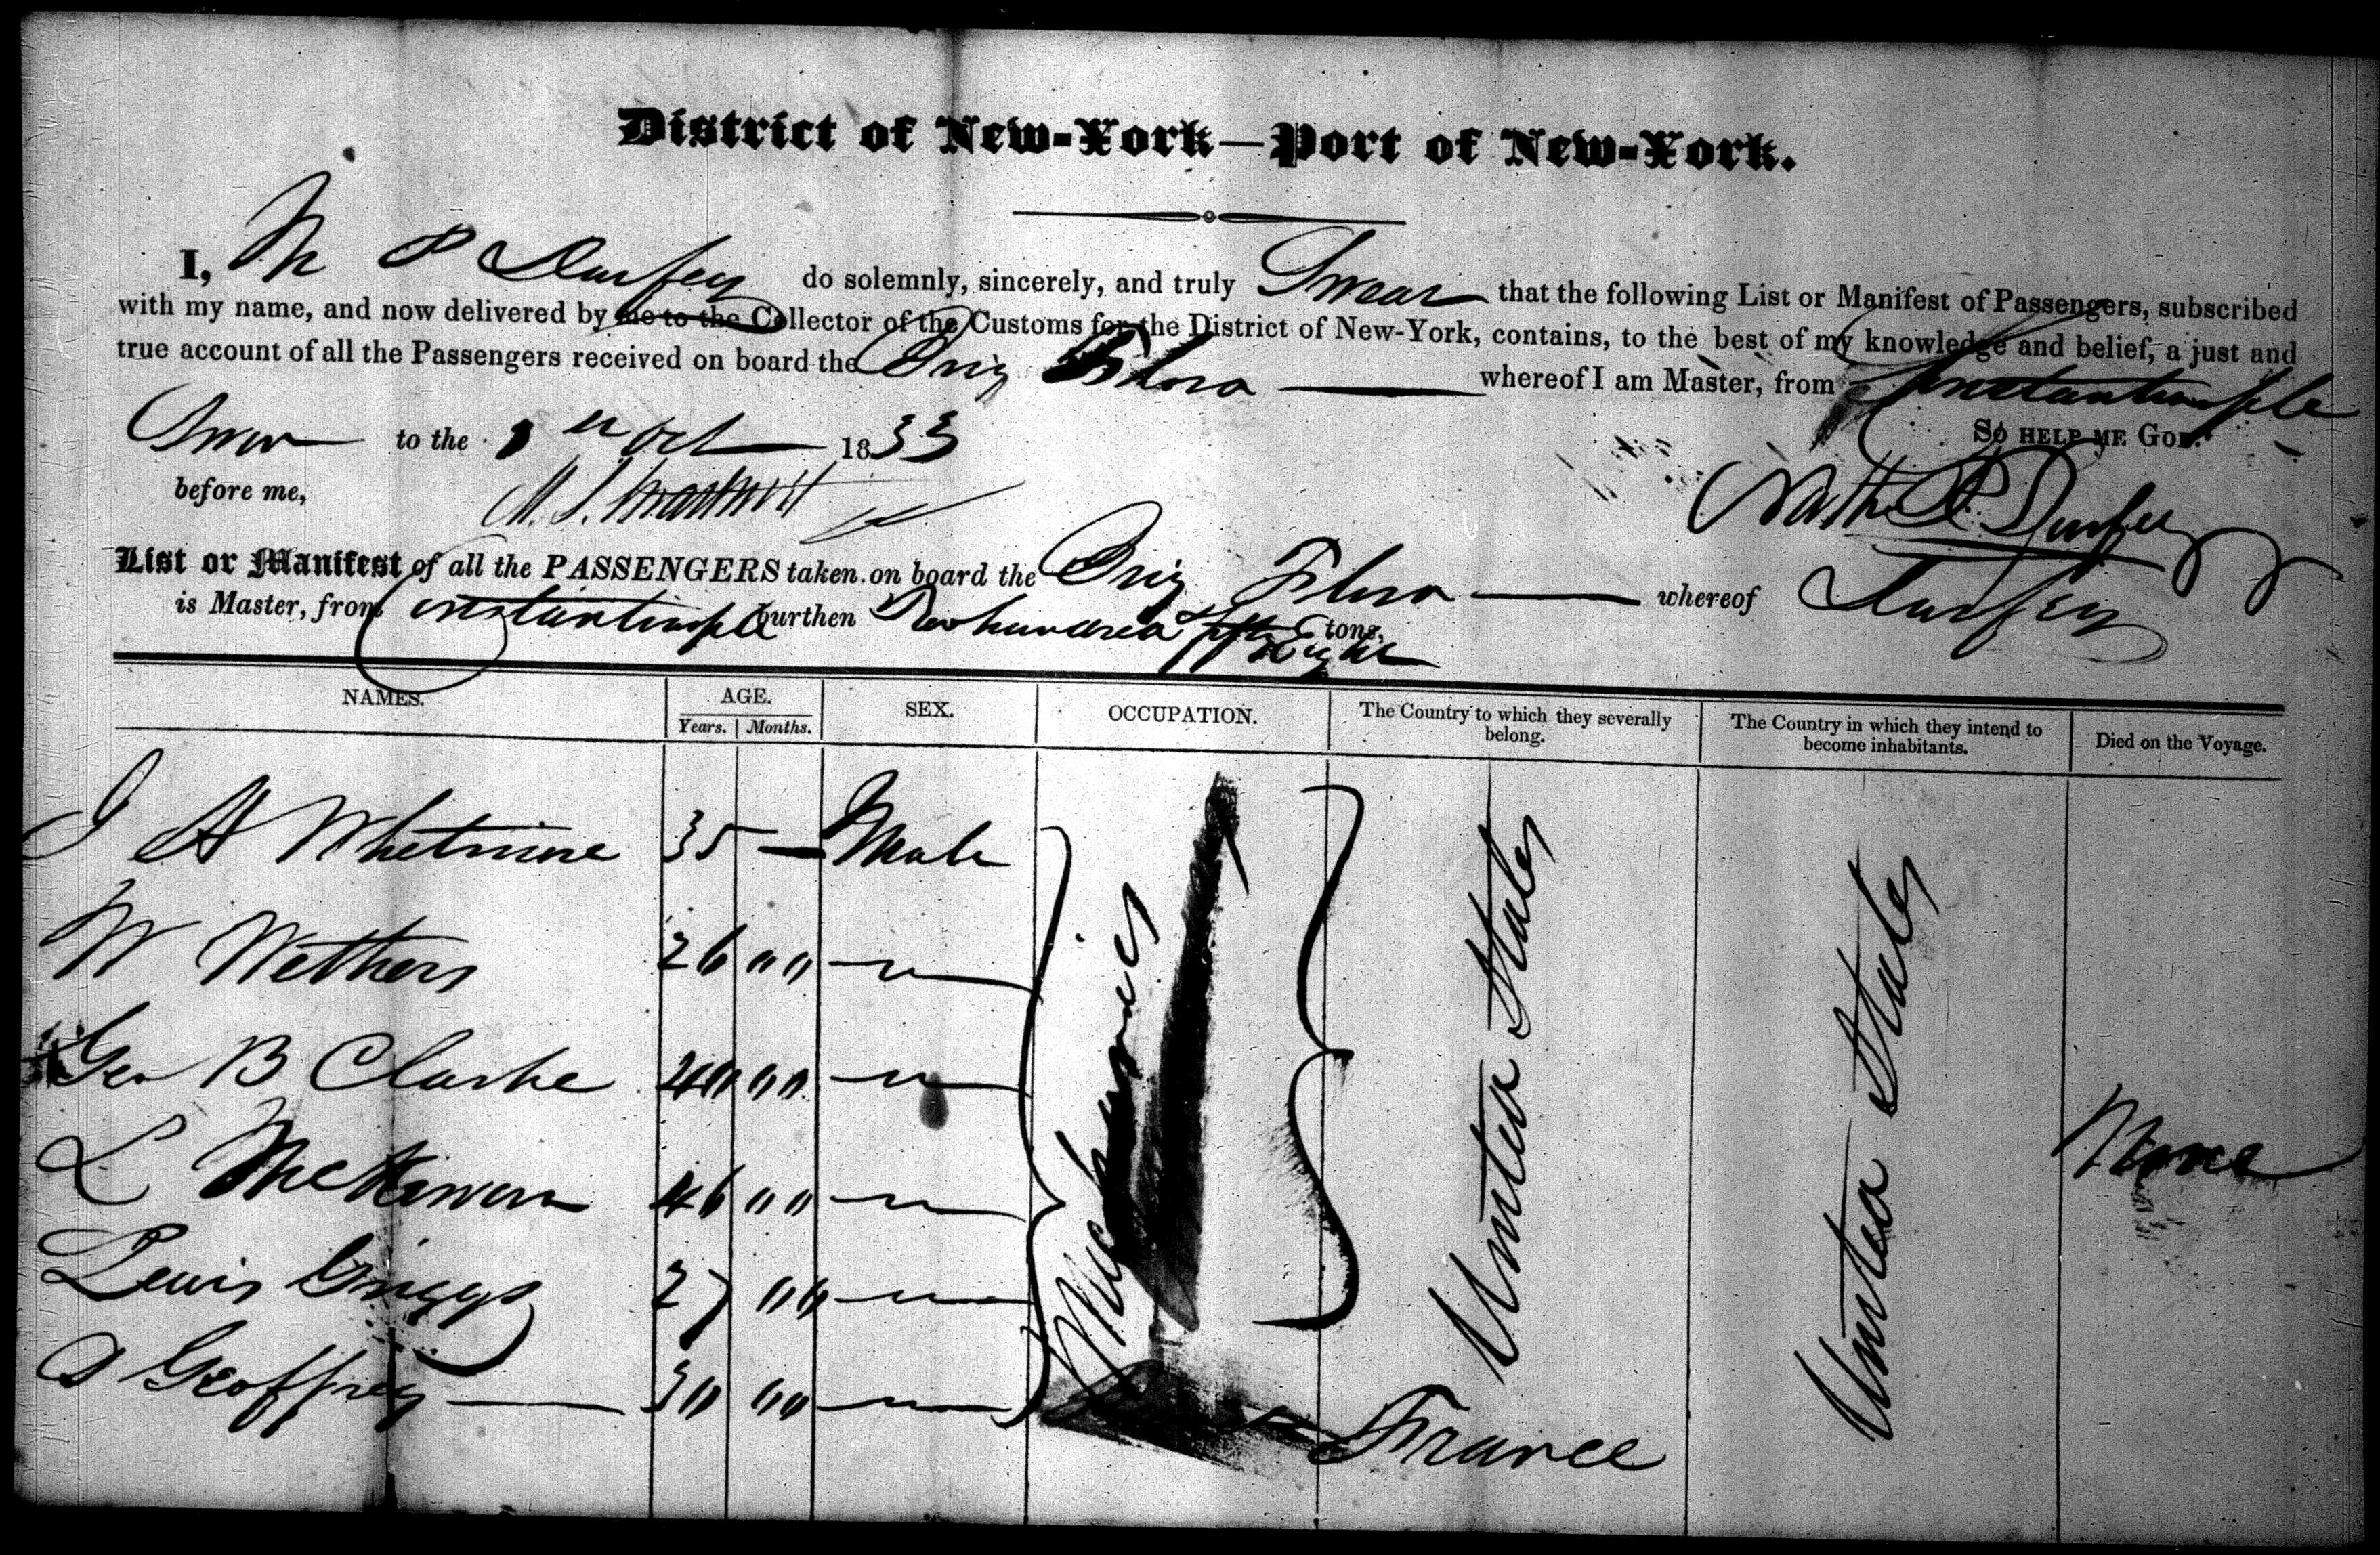 District of New-York—Port of New-York.
I, N P Durfey do solemnly, sincerely, and truly Swear that the following List or Manifest of Passengers, subscribed
with my name, and now delivered by me to the Collector of the Customs for the District of New-York, contains, to the best of my knowledge and belief, a just and
true account of all the Passengers received on board the Brig Flora whereof I am Master, from Constantinople
So help me God.
Sworn to the Oct 1833
before me,
Nath P. Durfee
List or Manifest of all the PASSENGERS taken on board the Brig Flora whereof Durfey
is Master, from Constantinople burthen Two hundred fifty Eight tons,
NAMES. AGE. SEX. OCCUPATION. The Country to which they severally belong. The Country in which they intend to become inhabitants. Died on the Voyage.
Years. Months.
J A Whetmore 35 — Male Mechanics United States United States None
W Wethers 26 " " "
Geo B Clarke 40 " " "
L McKinnon 46 " " "
Lewis Griggs 27 " " "
A Geoffrey 30 " " " France